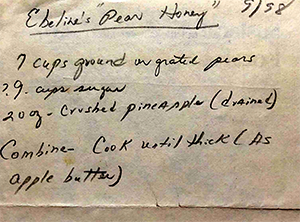 Ebeline's "Pear Honey" 9/98
7 cups ground or grated pears
?9. cups sugar
20 oz - Crushed pineapple (drained)
Combine - Cook until thick (As
apple butter)